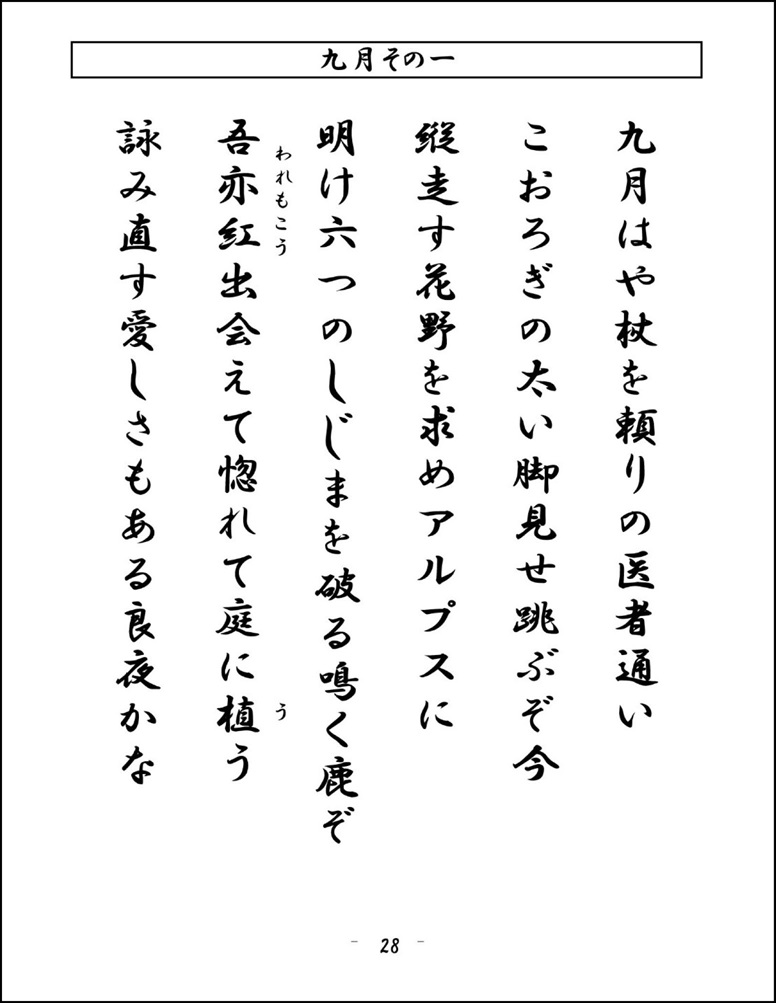 九月その一
九月はや杖を頼りの医者通い
こおろぎの太い脚見せ跳ぶぞ今
縦走す花野を求めアルプスに
明け六つのしじまを破る鳴く鹿ぞ
われもこう
う
吾亦紅出会えて惚れて庭に植う
詠み直す愛しさもある良夜かな
- 28 -